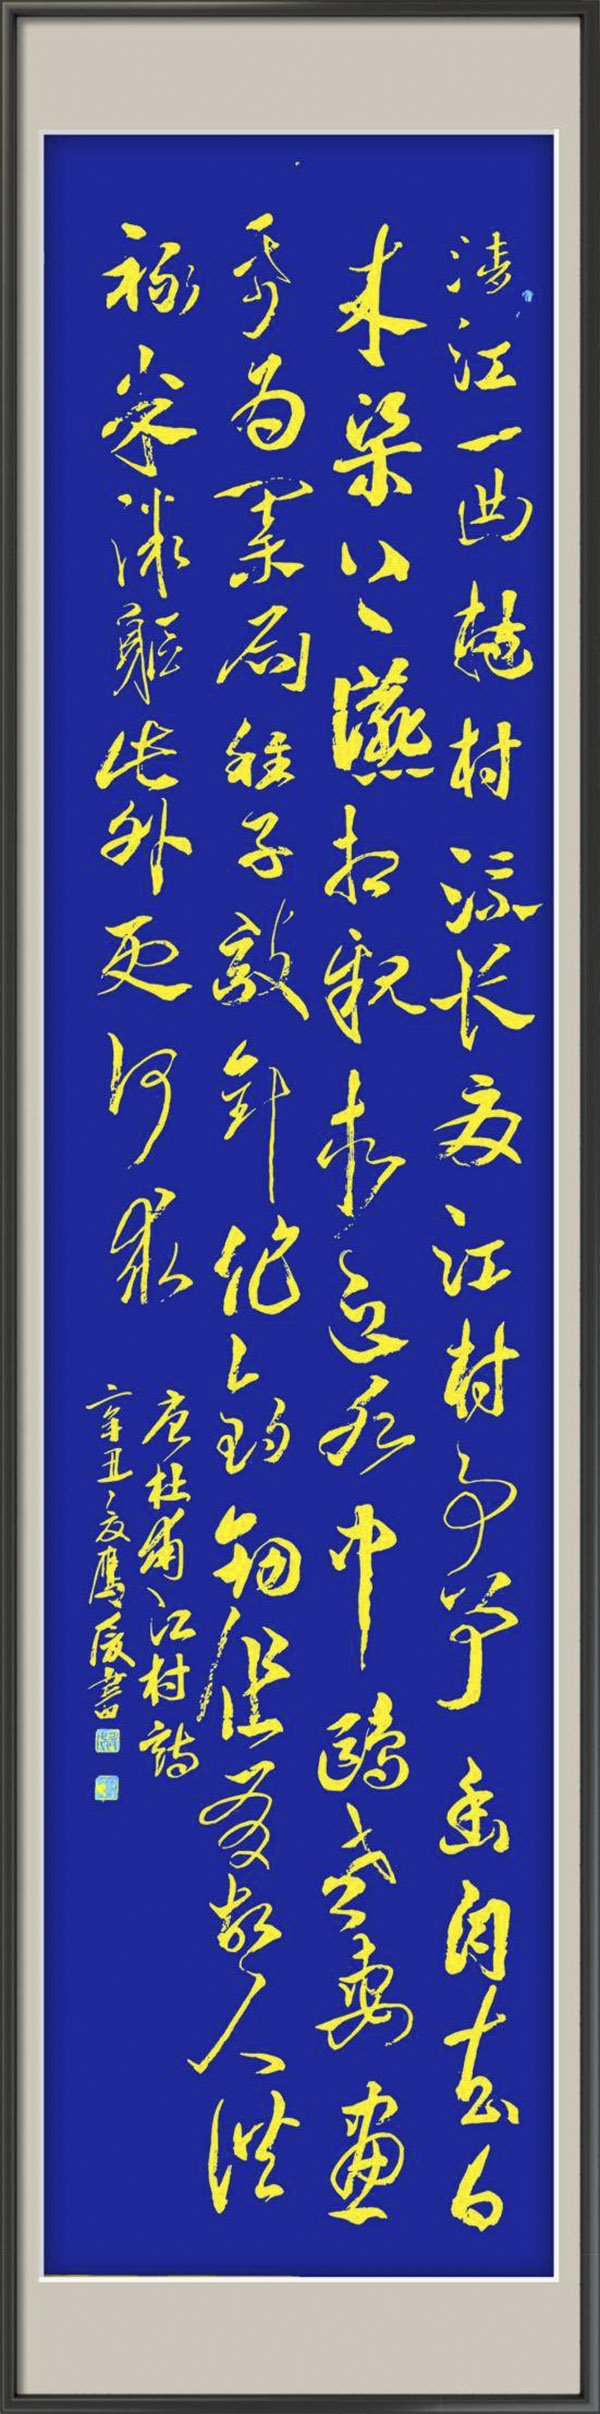 清江一曲抱村流长夏江村事事幽自去自
来梁上燕相親相近水中鷗老妻畫
紙为棊局稚子敲針作釣鉤但有故人供
禄米微軀此外更何求
唐杜甫江村詩
辛丑夏鹰書